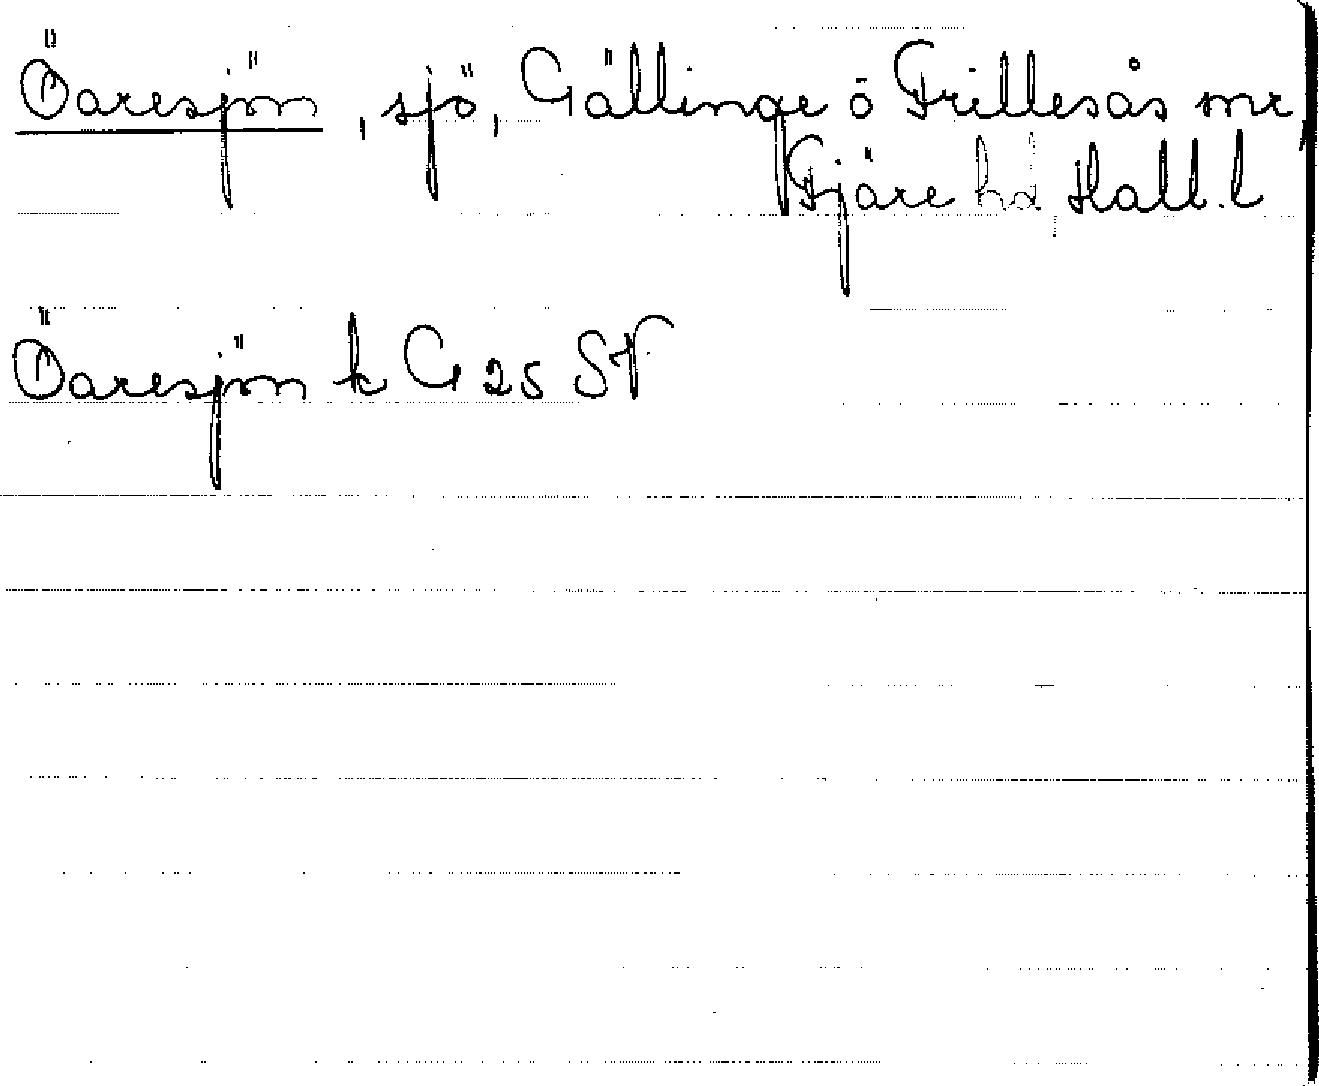 Öaresjön, sjö, Gällinge o Frillesås snr,
Fjäre hd Hall. l
Öaresjön k G 25 SV